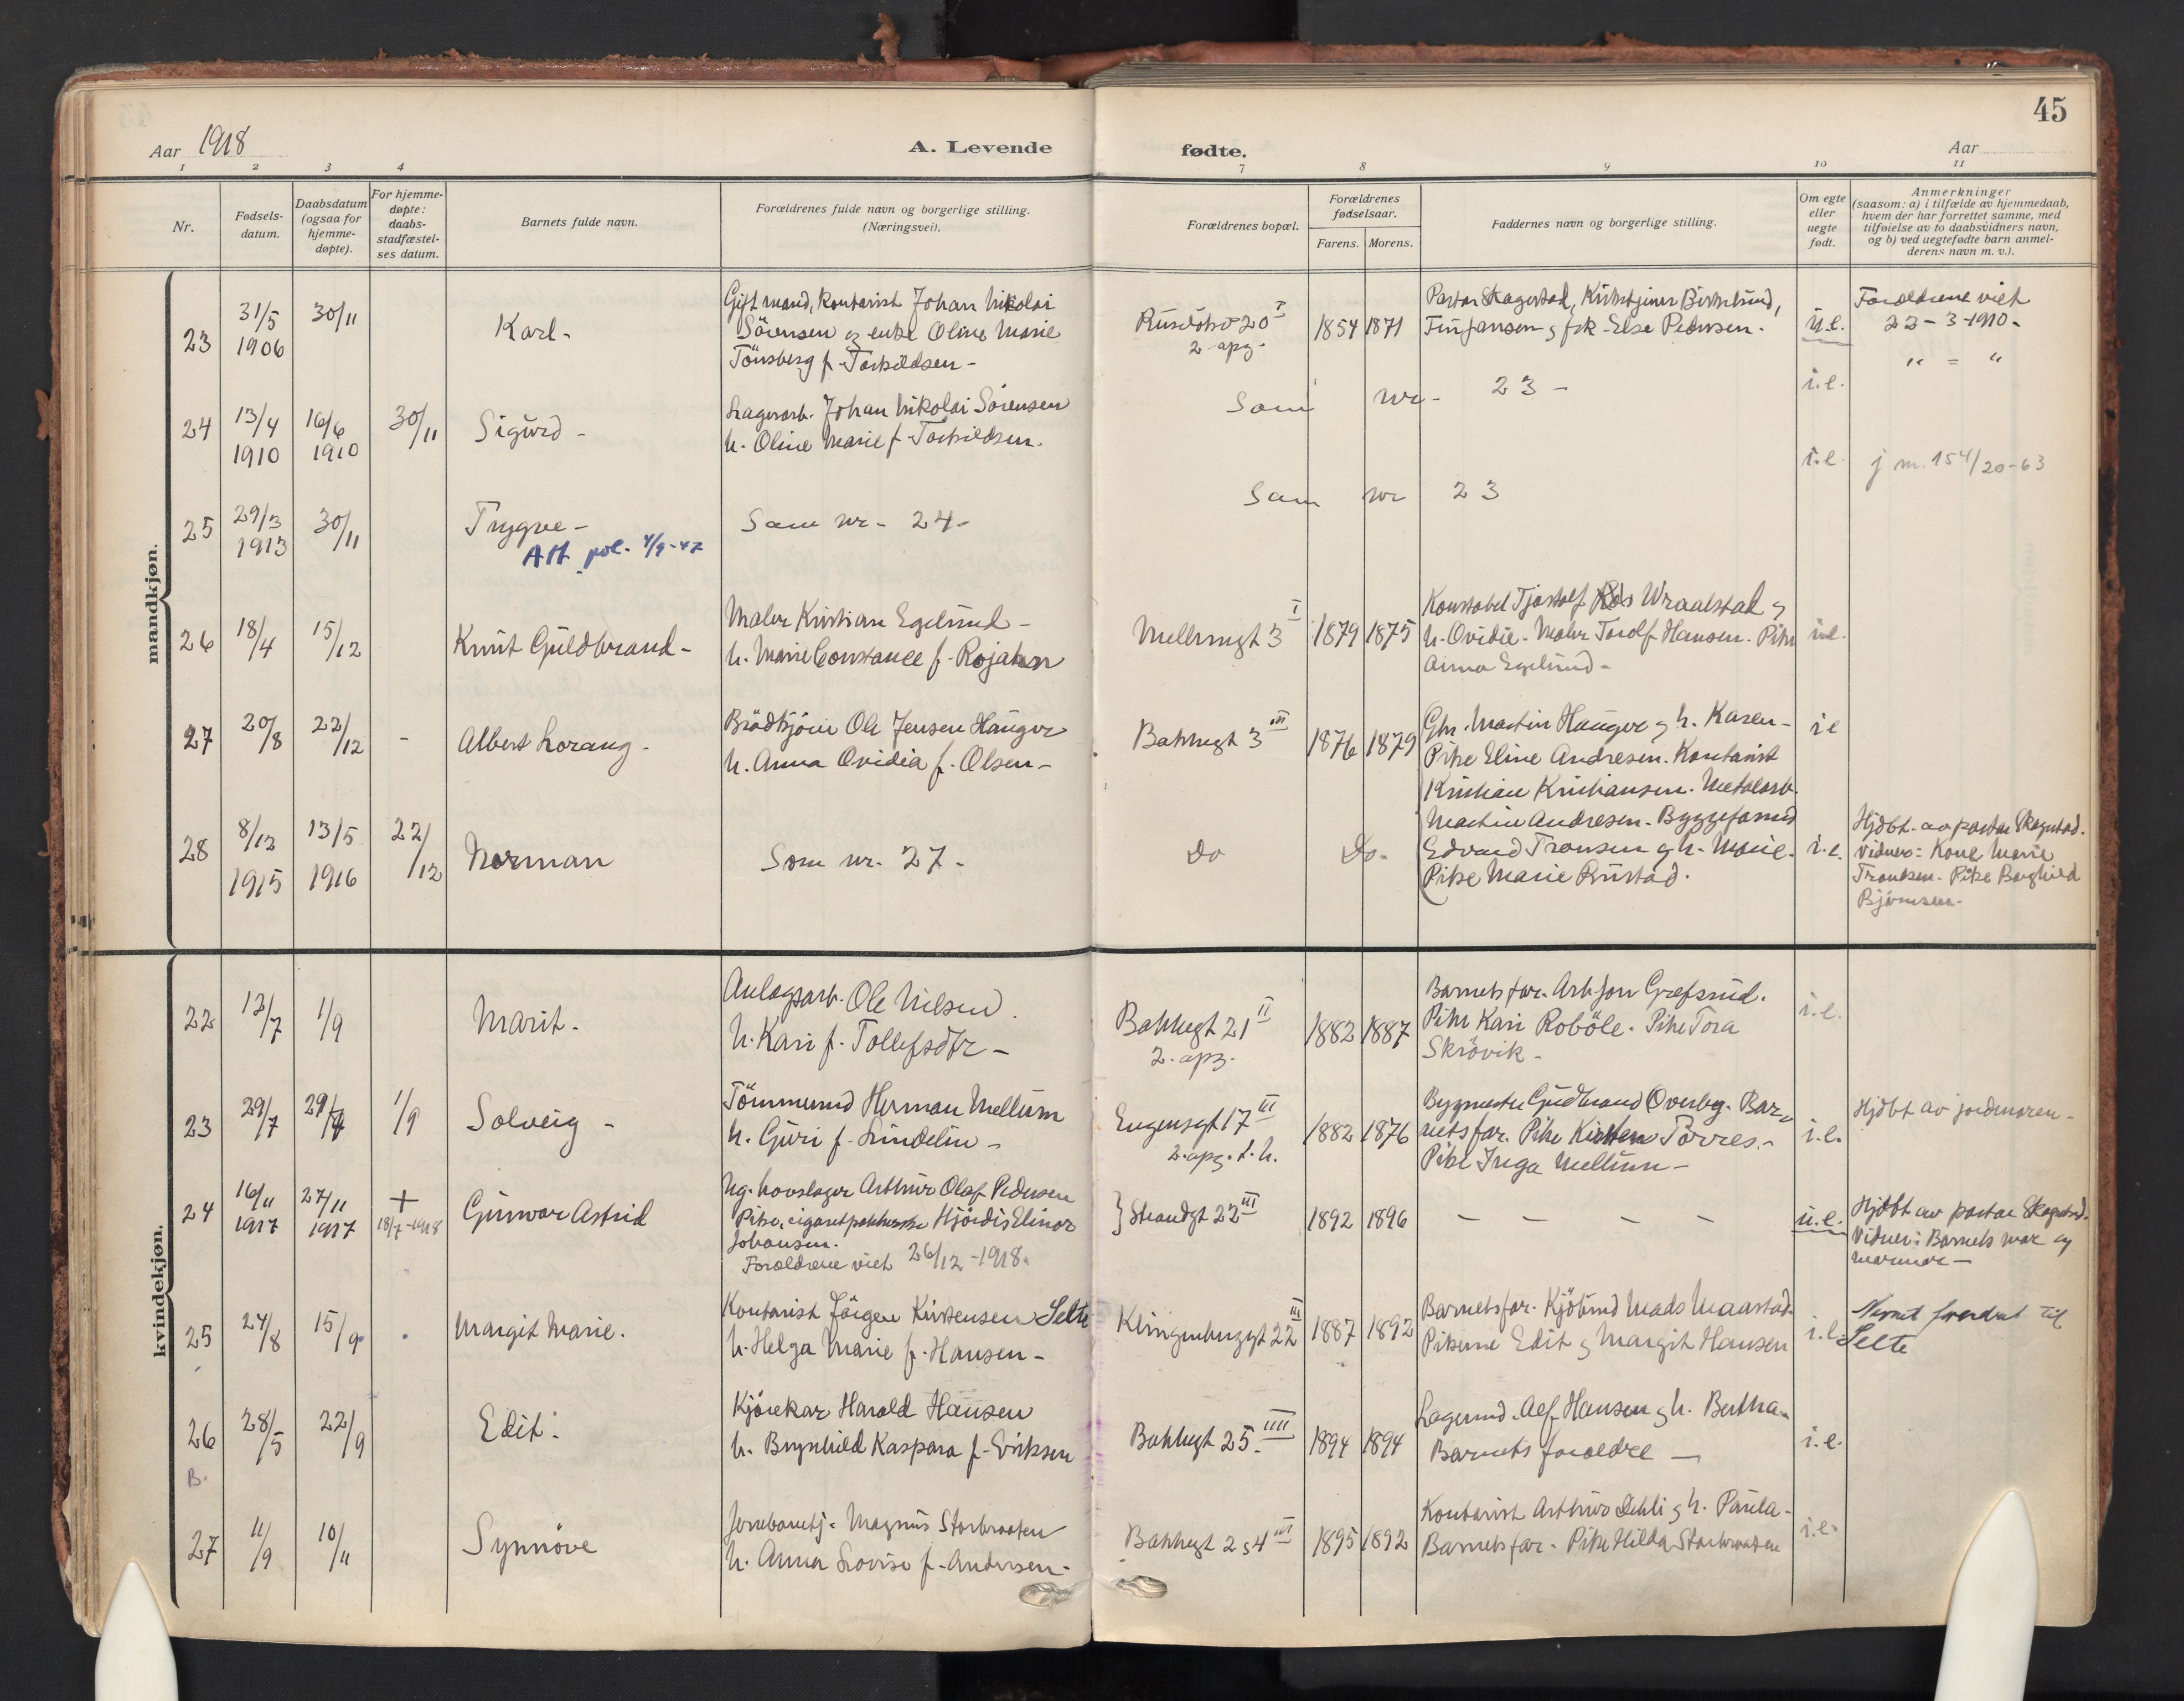 45
Aar 1918
A. Levende
fødte.
Aar
1 2 3 4 7 8 9 10 11
Nr.
Fødsels-
datum.
Daabsdatum
(ogsaa for
hjemme-
døpte).
For hjemme-
døpte:
daabs-
stadfæstel-
ses datum.
Barnets fulde navn.
Forældrenes fulde navn og borgerlige stilling.
(Næringsvei).
Forældrenes bopæl.
Forældrenes
fødselsaar.
Farens. Morens.
Faddernes navn og borgerlige stilling.
Om egte
eller
uegte
født.
Anmerkninger
(saasom: a) i tilfælde av hjemmedaab,
hvem der har forrettet samme, med
tilføielse av to daabsvidners navn,
og b) ved uegtefødte barn anmel-
derens navn m. v.).
mandkjøn.
23
31/5
1906
30/11
Karl-
Gift mand, kontorist Johan Nikolai
Sörensen og enke Oline Marie
Tönsberg f. Torkildsen-
20 I
2 apg.
1854 1871
Pastor Skagestad,
Finjansen & frk Else Pedersen.
u.e.
Forældrene viet
22-3-1910-
24
13/4
1910
16/6
1910
30/11
Sigurd-
Lagerarb. Johan Nikolai Sörensen
h. Oline Marie f. Torkildsen.
Som nr- 23-
i.e.
" = "
25
29/3
1913
30/11
Trygve-
Att. pol. 4/9-47
Som nr- 24-
Som nr 23
i.e.
j m. 154/20-63
26
18/4
15/12
Knut Guldbrand-
Maler Kristian Egelund-
h. Marie Constance f. Rojahn
Möllergt 3 I
1879 1875
Konstabel Tjostolf Wraalstad &
h. Ovidie. Maler Torolf Hansen. Pike
Anna Egelund-
i.e.
27
20/8
22/12
-
Albert Lorang.
Brödkjörer Ole Jensen Hauger
h. Anna Ovidia f. Olsen-
Bakkegt 3 III
1876 1879
Martin Hauger & h. Karen-
Pike Eline Andresen. Kontorist
Kristian Kristiansen. Metalarb.
i e
28
8/12
1915
13/5
1916
22/12
Norman
Som nr. 27-
Do
Do.
Martin Andresen.
Edvard Fransen & h. Marie.
Pike Marie Rustad.
i.e.
Hjdbt. av pastor Skagestad.
Vidner: Kone Marie
Pike Borghild
Björnsen-
kvindekjøn.
22
12/7
1/9
Marit.
Anlagsarb. Ole Nilsen.
h. Kari f. Tollefsdtr-
Bakkegt 21 II
2. apg.
1882 1887
Barnets far. Arb Jon Grefsrud.
Pike Kari Roböle. Pike Tora
Skrövik-
i.e.
23
29/7
1/9
Solveig-
Tömmermd Herman Mellum
h. Guri f. Lundelin-
Eugensgt 17 III
2. apg. t. h.
1882 1876
Bygmester Gudbrand Overby. Bar-
nets far. Pike Kirsten Torres.-
Pike Inga Mellum-
i.e.
Hjdbt av jordmoren-
24
16/11
1917
27/11
1917
+
18/7-1918
Gunvor Astrid
Ug. hovslager Arthur Olaf Pedersen
Pike, cigaretpakkerske Hjördis Elinor
Johansen.
Forældrene viet 26/12-1918.
} Strandgt 22 III
1892 1896
- - - -
u.e.
Hjdbt av pastor Skagestad.
Vidner: Barnets mor og
mormor-
25
24/8
15/9
Margit Marie.
Kontorist Jörgen Kristensen Selte
h. Helga Marie f. Hansen-
Klingenberggt 22 III
1887 1892
Barnets far. Kjöbmd Mads Maarstad.
Pikerne Edit & Margit Hansen
i.e.
Navnet forandret til
Selte
26
B.
28/5
22/9
Edit.
Kjörekar Harald Hansen
h. Brynhild Kaspara f. Eriksen
Bakkegt 25. IIII
1894 1894
Lagermd. Alf Hansen & h. Bertha.
Barnets forældre-
i.e.
27
11/9
10/11
Synnöve
Jernbanetj. Magnus Storbraaten
h. Anna Lovise f. Andersen-
Bakkegt 2 & 4 III
1895 1892
Kontorist Arthur Dehli & h. Paula-
Barnets far. Pike Hilda Storbraaten
i.e.